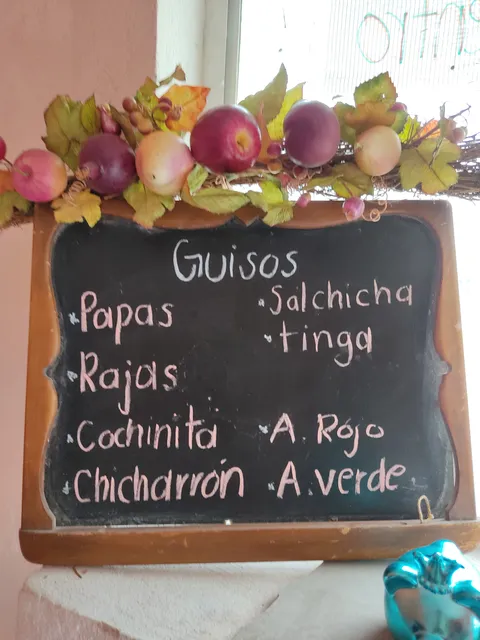 Guisos
Papas
Rajas
Cochinita
Chicharrón
Salchicha
tinga
A. Rojo
A. verde